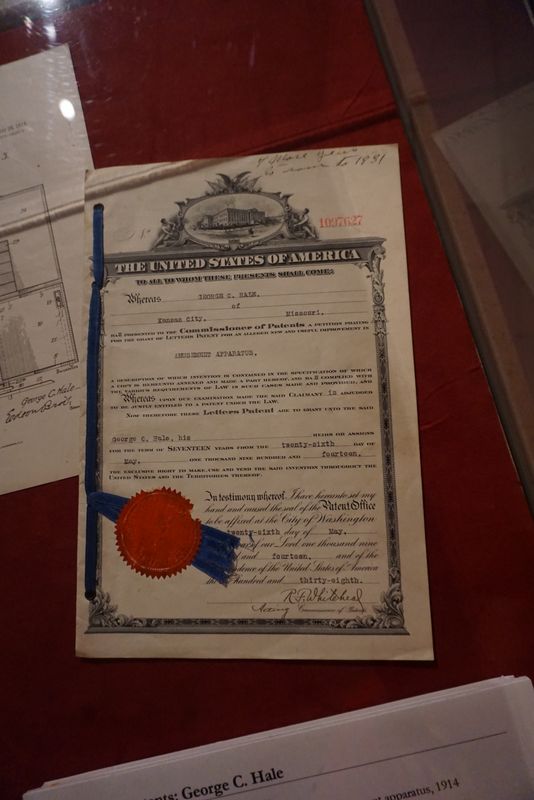 to 1931
1097627
THE UNITED STATES OF AMERICA
TO ALL TO WHOM THESE PRESENTS SHALL COME:
Whereas GEORGE C. HALE,
of
Kansas City, Missouri,
HAS PRESENTED TO THE Commissioner of Patents A PETITION PRAYING
FOR THE GRANT OF LETTERS PATENT FOR AN ALLEGED NEW AND USEFUL IMPROVEMENT IN
AMUSEMENT APPARATUS,
A DESCRIPTION OF WHICH INVENTION IS CONTAINED IN THE SPECIFICATION OF WHICH
A COPY IS HEREUNTO ANNEXED AND MADE A PART HEREOF, AND HAS COMPLIED WITH
THE VARIOUS REQUIREMENTS OF LAW IN SUCH CASES MADE AND PROVIDED, AND
Whereas UPON DUE EXAMINATION MADE THE SAID CLAIMANT is ADJUDGED
TO BE JUSTLY ENTITLED TO A PATENT UNDER THE LAW.
NOW THEREFORE THESE Letters Patent ARE TO GRANT UNTO THE SAID
George C. Hale, his HEIRS OR ASSIGNS
FOR THE TERM OF SEVENTEEN YEARS FROM THE twenty-sixth DAY OF
May, ONE THOUSAND NINE HUNDRED AND fourteen,
THE EXCLUSIVE RIGHT TO MAKE, USE AND VEND THE SAID INVENTION THROUGHOUT THE
UNITED STATES AND THE TERRITORIES THEREOF.
In testimony whereof, I have hereunto set my
hand and caused the seal of the Patent Office
to be affixed at the City of Washington
twenty-sixth day of May,
of our Lord one thousand nine
and fourteen, and of the
of the United States of America
Hundred and thirty-eighth.
R.F. Whitehead
Acting Commissioner of Patents.
3.
George C. Hale
George C. Hale
apparatus, 1914